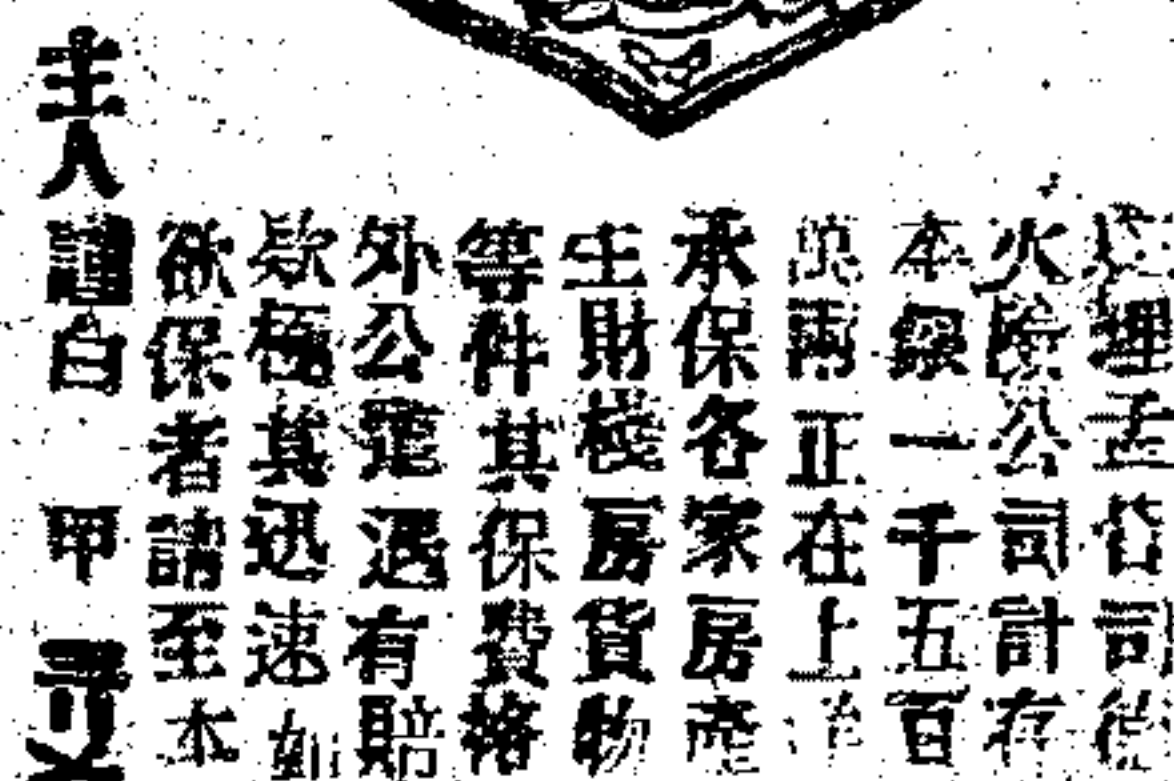 經理
火險公司計存
本銀一千五百
兩正在上
承保各家房產
生財棧房貨物
等件其保費格
外公定遇有賠
款極其迅速如
欲保者請至本
主人謹白 甲